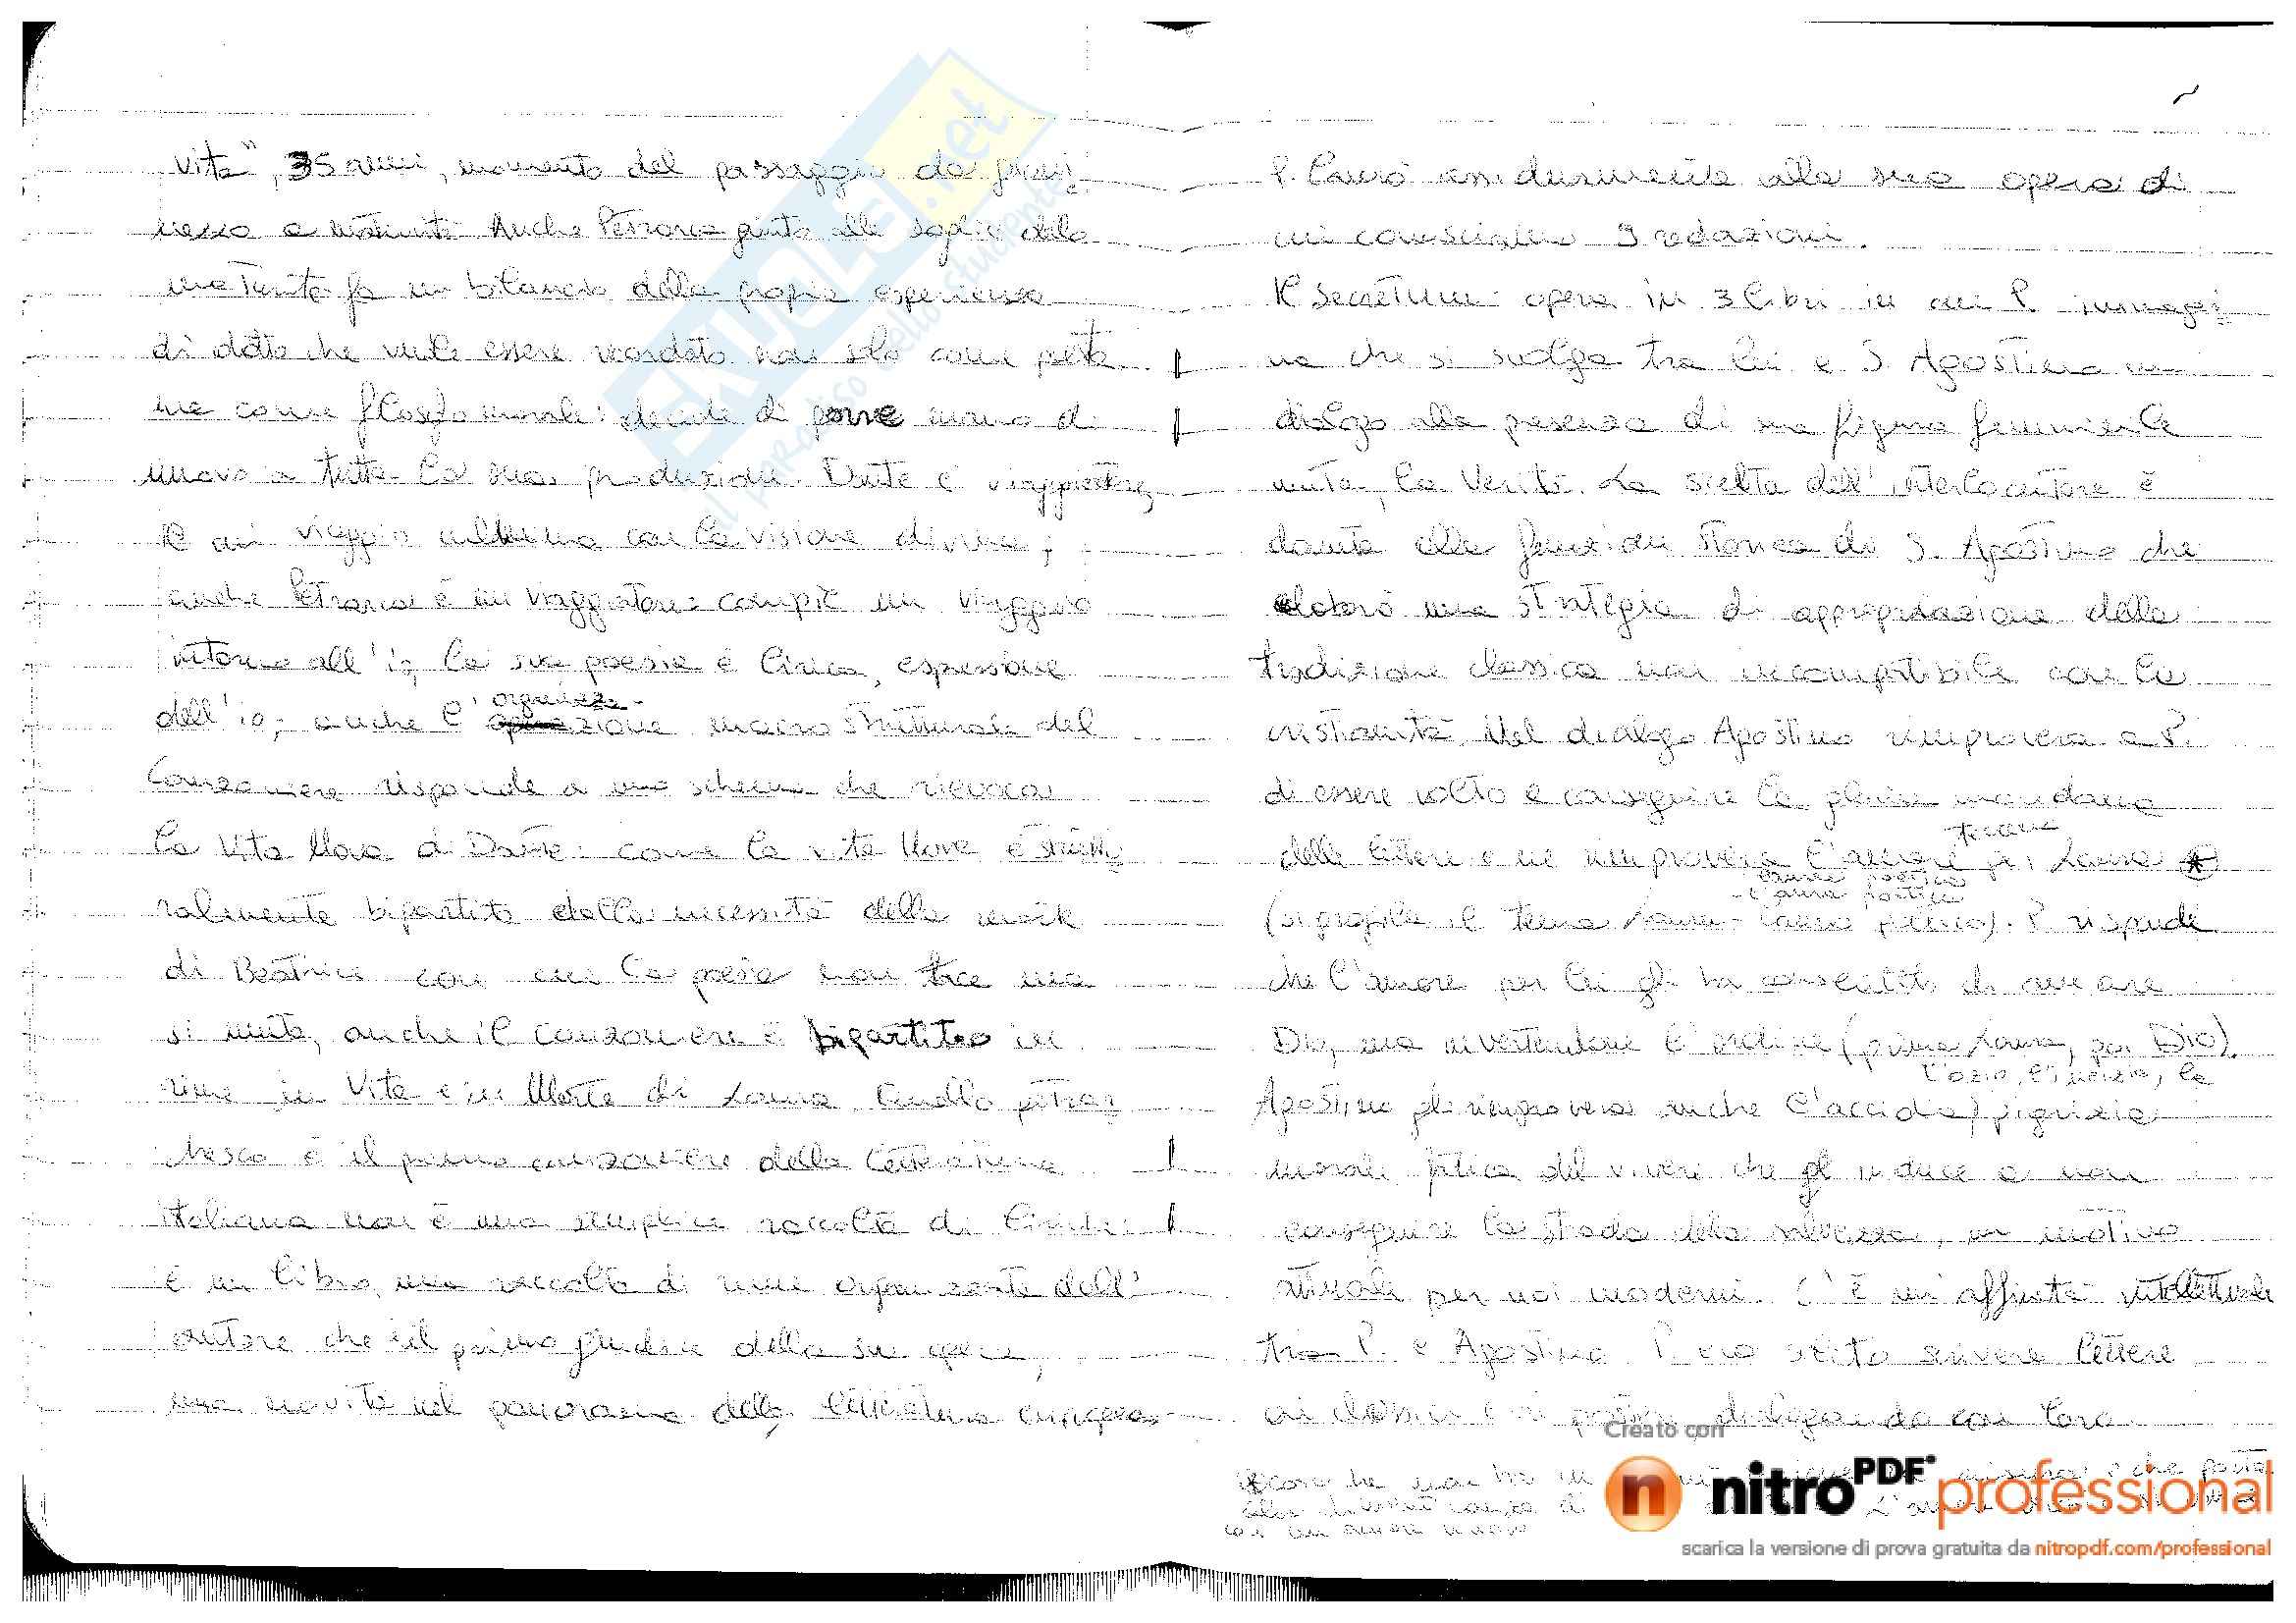 vita", 35 anni, momento del passaggio da giovi
nezza a maturità. Anche Petrarca giunto alle soglie della
maturità fa un bilancio della propria esperienza
di dotto che vuole essere ricordato non solo come poeta
ma come filosofo morale: decide di porre mano di
nuovo a tutta la sua produzione. Dante è viaggiatore
il cui viaggio culmina con la visione divina;
anche Petrarca è un viaggiatore: compie un viaggio
intorno all'io, la sua poesia è lirica, espressione
dell'io; anche l'organizzazione macro strutturale del
Canzoniere risponde a uno schema che rievoca
la Vita Nova di Dante: come la vita Nova è struttu
ralmente bipartita dalla necessità della morte
di Beatrice con cui la poesia non tace ma
si muta, anche il canzoniere è bipartito in
rime in Vita e in Morte di Laura. Quello petrar
chesco è il primo canzoniere della letteratura
italiana non è una semplice raccolta di liriche:
è un libro, una raccolta di rime organizzate dall'
autore che è il primo giudice della sua opera,
una novità nel panorama della letteratura europea
P. lavorò assiduamente alla sua opera di
cui conosciamo 9 redazioni.
Il Secretum: opera in 3 libri in cui P. immagi
na che si svolga tra lui e S. Agostino un
dialogo alla presenza di una figura femminile
muta, la Verità. La scelta dell'interlocutore è
dovuta alla funzione storica di S. Agostino che
elaborò una strategia di appropriazione della
tradizione classica non incompatibile con la
cristianità. Nel dialogo Agostino rimprovera a P.
di essere volto a conseguire la gloria mondana
delle lettere e ne rimprovera l'amore terreno per Laura *
(si profila il tema Laura - lauro poetico - l'aura poetica). P. risponde
che l'amore per lei gli ha consentito di amare
Dio, ma invertendone l'ordine (prima Laura, poi Dio).
Agostino gli rimprovera anche l'accidia, l'ozio, l'inerzia, la pigrizia
morale fatica del vivere che gli induce a non
conseguire la strada della salvezza, un motivo
attuale per noi moderni. C'è un'affinità intellettuale
tra P. e Agostino. P. era solito scrivere lettere
ai classici e ai posteri dialogando con loro
che non ha in
di
un amore
Creato con
nitroPDF professional
scarica la versione di prova gratuita da nitropdf.com/professional
SKUOLA.net